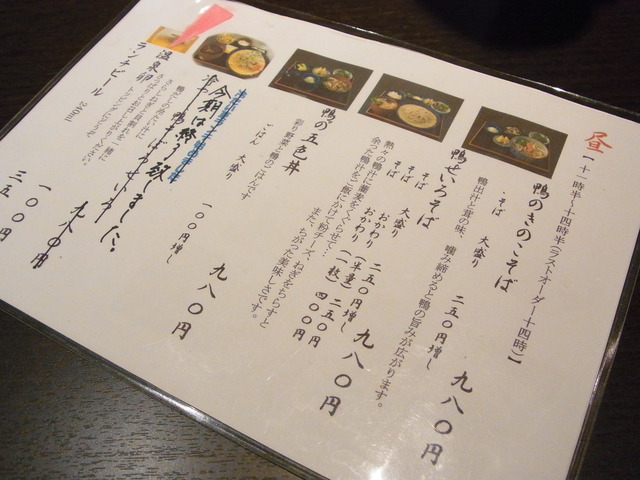 昼【十一時半〜十四時半(ラストオーダー十四時)】
鴨のきのこそば 九八〇円
鴨出汁と茸の味、噛み締めると鴨の旨みが広がります。
そば 大盛り 二五〇円増し
鴨せいろそば 九八〇円
熱々の鴨汁に蕎麦をくぐらせて…
余った鴨汁をご飯にかけて粉チーズ、ねぎをちらすと
また、ちがった美味しさです。
そば 大盛り 二五〇円増し
そば おかわり(半量) 二五〇円
そば おかわり(一枚) 四〇〇円
鴨の五色丼 九八〇円
彩り野菜と鴨のごはんです
ごはん 大盛り 一〇〇円増し
今期は終了致しました。
九八〇円
温泉卵 一〇〇円
ランチビール 三五〇円